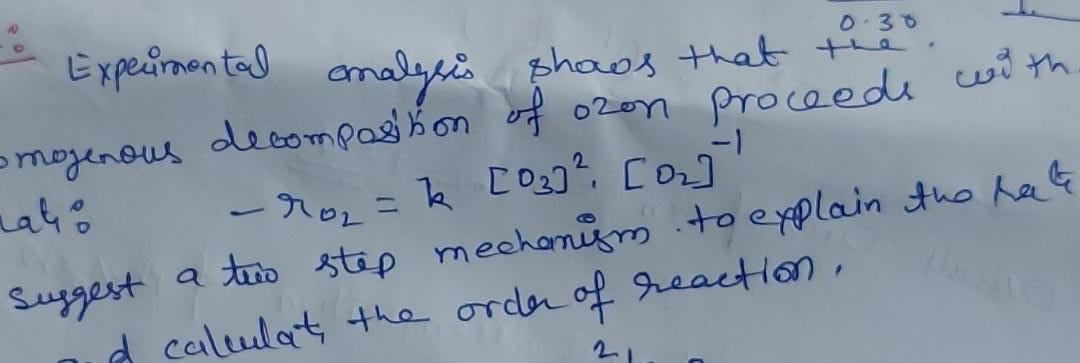 0.30
Experimental analysis shows that the
omogenous decomposition of ozon proceeds with
- r_O2 = k [O3]². [O2]⁻¹
suggest a two step mechanism. to explain the
calculat the order of reaction.
2